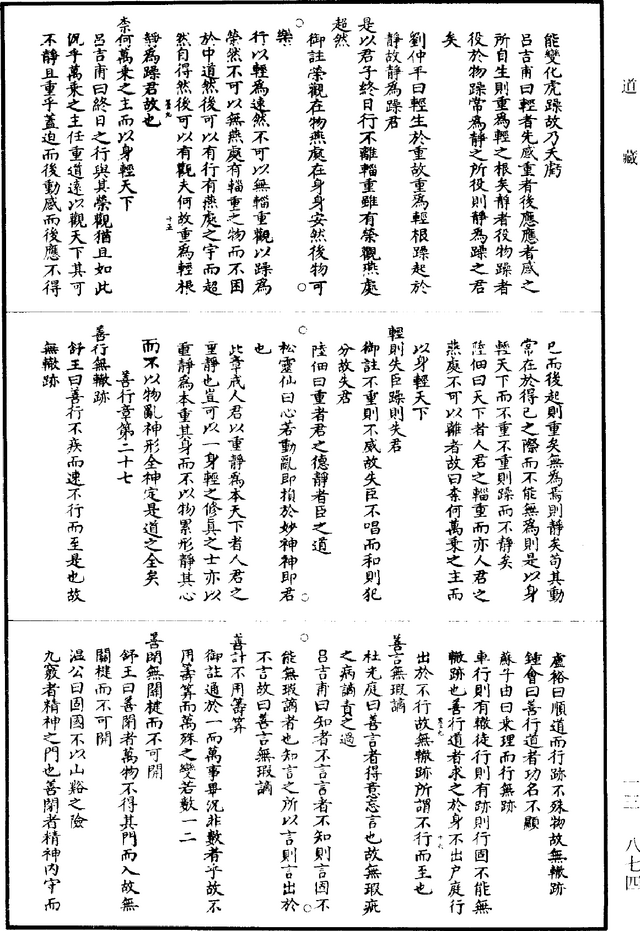 道藏
一三
八七四
能變化虎躁故乃夭虧
呂吉甫曰輕者先感重者後應應者感之
所自生則重爲輕之根矣靜者役物躁者
役於物躁常爲靜之所役則靜爲躁之君
矣
劉仲平曰輕生於重故重爲輕根躁起於
靜故靜爲躁君
是以君子終日行不離輜重雖有榮觀燕處
超然
御註榮觀在物燕處在身身安然後物可
樂
行以輕爲速然不可以無輜重觀以躁爲
榮然不可以無燕處有輜重之物而不困
於中道然後可以有行有燕處之宇而超
然自得然後可以有觀夫何故重爲輕根
靜爲躁君故也
柰何萬乘之主而以身輕天下
呂吉甫曰終日之行與其榮觀猶且如此
況乎萬乘之主任重道遠以觀天下其可
不靜且重乎蓋迫而後動感而後應不得
已而後起則重矣無爲焉則靜矣苟其動
常在於得已之際而不能無爲則是以身
輕天下而不重不重則躁而不靜矣
陸佃曰天下者人君之輜重而亦人君之
燕處不可以離者故曰柰何萬乘之主而
以身輕天下
輕則失臣躁則失君
御註不重則不威故失臣不唱而和則犯
分故失君
陸佃曰重者君之德靜者臣之道
松靈仙曰心若動亂即損於妙神神即君
也
此章戒人君以重靜爲本天下者人君之
重靜也豈可以一身輕之修真之士亦以
重靜爲本重其身而不以物累形靜其心
而不以物亂神形全神定是道之全矣
善行章第二十七
善行無轍跡
舒王曰善行不疾而速不行而至是也故
無轍跡
盧裕曰順道而行跡不殊物故無轍跡
鍾會曰善行道者功名不顯
蘇子由曰乘理而行無跡
車行則有轍徒行則有跡則行固不能無
轍跡也善行道者求之於身不出戶庭行
出於不行故無轍跡所謂不行而至也
善言無瑕讁
杜光庭曰善言者得意忘言也故無瑕疵
之病讁責之過
呂吉甫曰知者不言言者不知則言固不
能無瑕讁者也知言之所以言則言出於
不言故曰善言無瑕讁
善計不用籌算
御註通於一而萬事畢況非數者乎故不
用籌算而萬殊之變若數一二
善閉無關楗而不可開
舒王曰善閉者萬物不得其門而入故無
關楗而不可開
溫公曰固國不以山谿之險
九竅者精神之門也善閉者精神內守而